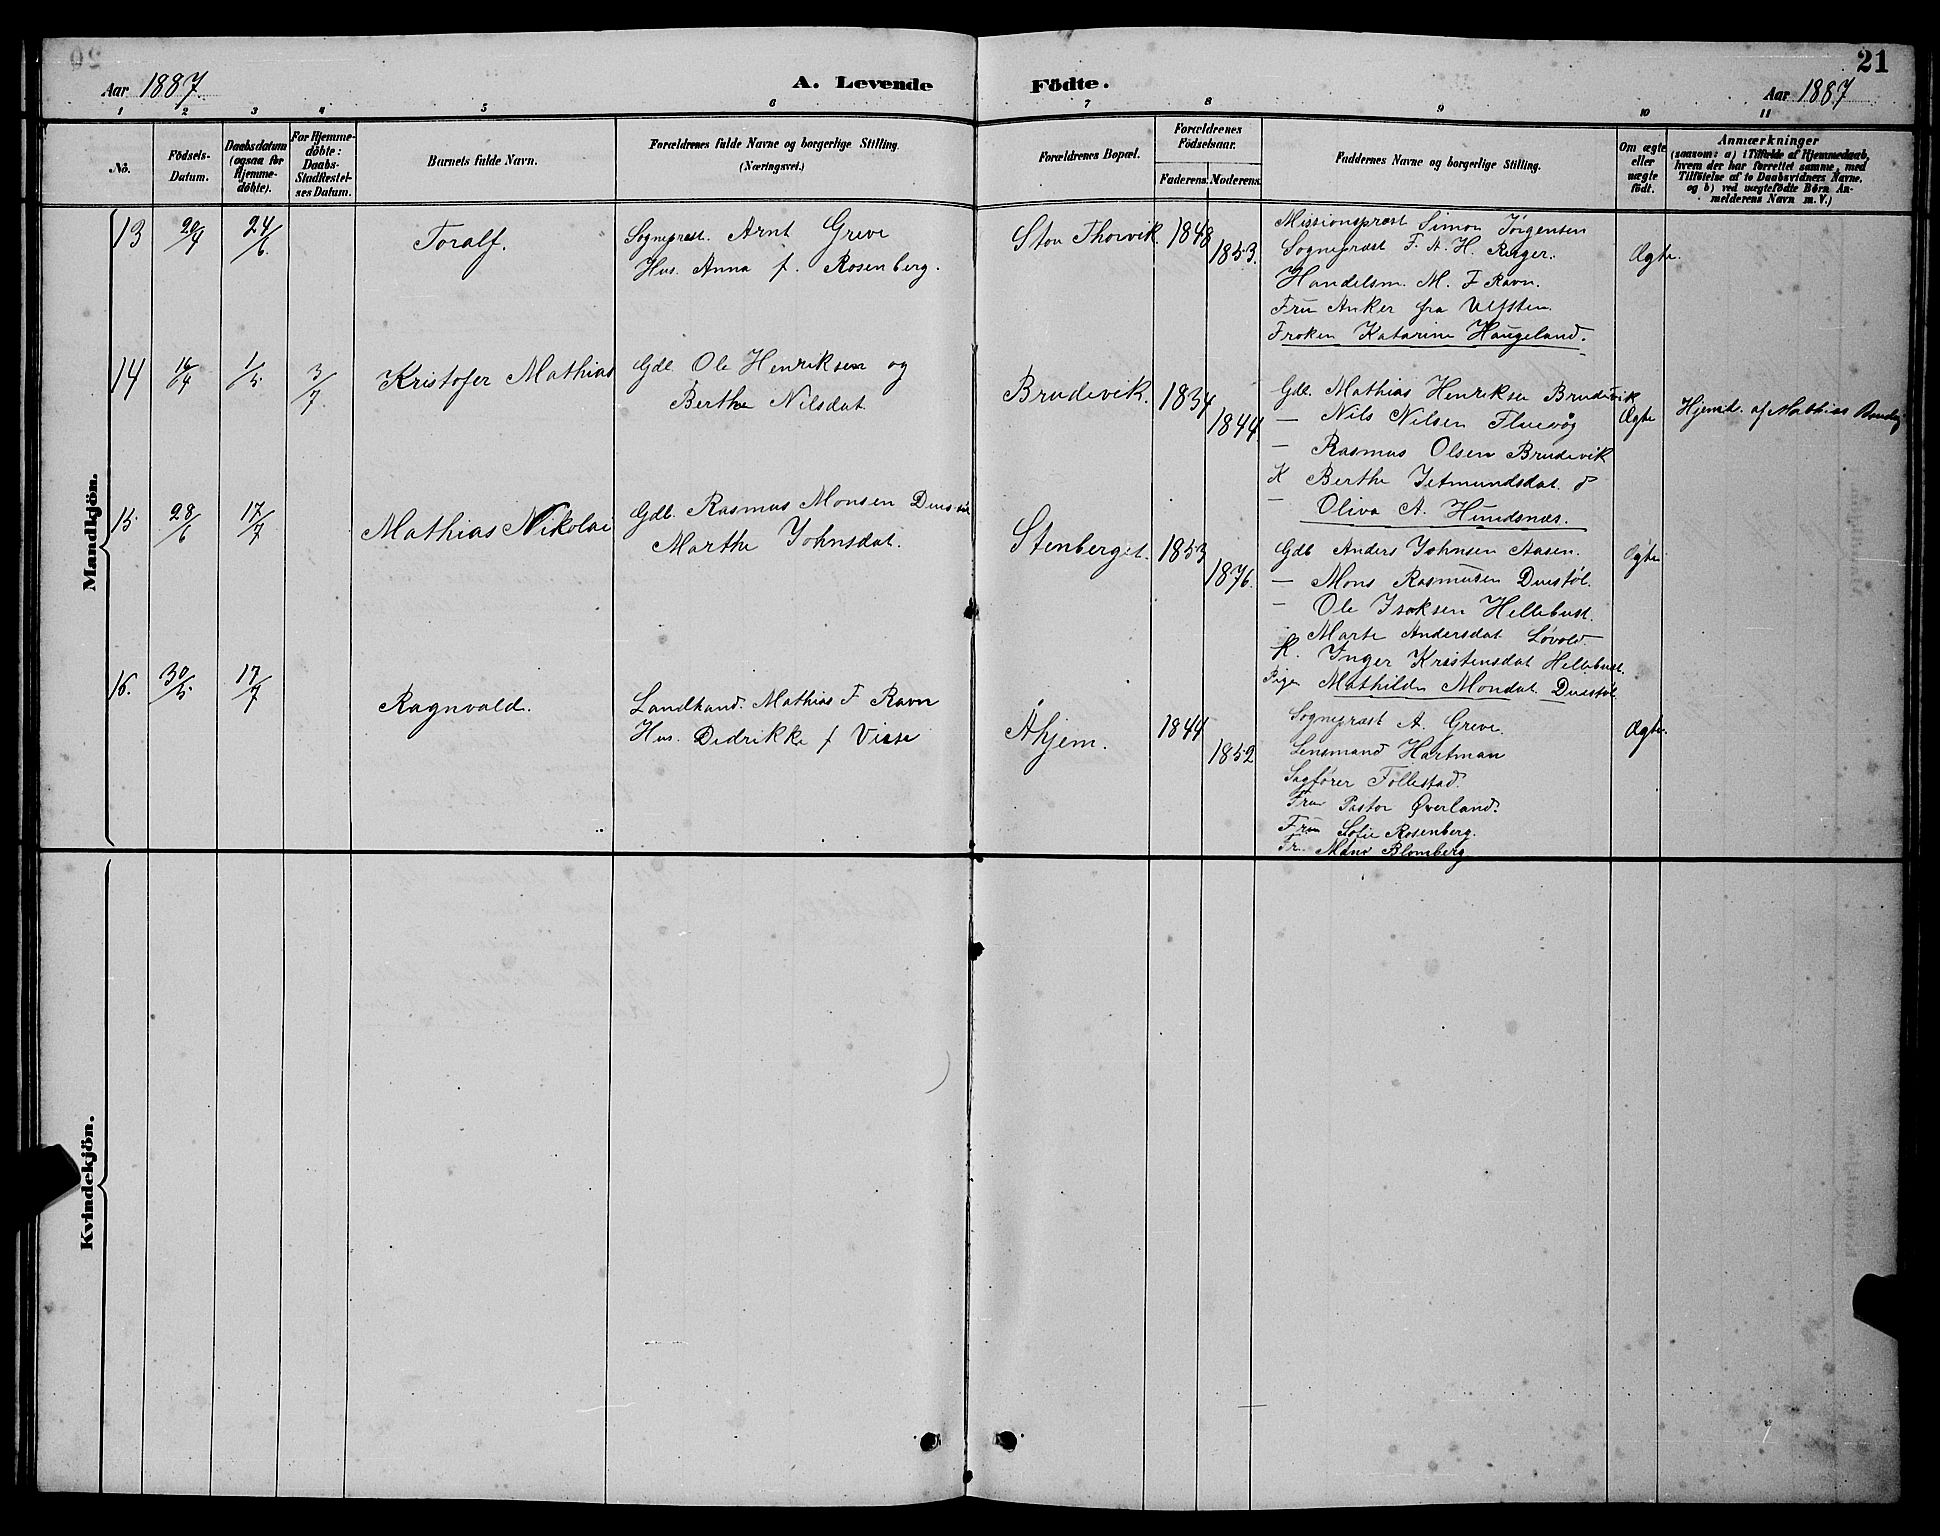 20
21
Aar 1887
A. Levende
Födte.
Aar 1887
1 2 3 4 5 6 7 8 9 10 11
No.
Födsels-
Datum.
Daabsdatum
(ogsaa for
Hjemme-
döbte).
For Hjemme-
döbte:
Daabs-
Stadfæstel-
ses Datum.
Barnets fulde Navn.
Forældrenes fulde Navne og borgerlige Stilling.
(Næringsvei.)
Forældrenes Bopæl.
Forældrenes
Födselsaar.
Faderens. Moderens.
Faddernes Navne og borgerlige Stilling.
Om ægte
eller
uægte
födt.
Anmærkninger
(saasom: a) i Tilfælde af Hjemmedaab,
hvem der har forrettet samme, med
Tilföielse af to Daabsvidners Navne,
og b) ved uægtefödte Börn An-
melderens Navn m. V.)
Mandkjön.
13 29/4 24/6 Toralf. Sognepræst. Arnt Greve
Hus. Anna f. Rosenberg.
Thorvik. 1848
1853.
Missionspræst Simon Jörgensen
Sognepræst F. A. H.
Handelsm. M. F Ravn.
Fru Anker fra Ulfsten.
Frøken Katarine Haugeland.
Ægte.
14 16/4 1/5 3/7 Kristofer Mathias Gdb. Ole Henriksen og
Berthe Nilsdat.
Brudevik. 1834
1844
Gdb. Mathias Henriksen Brudevik
— Nils Nilsen Fluevåg
— Rasmus Olsen Brudevik
K Berthe
— Oliva A. Hundsnæs.
Ægte
Hjemd. af Mathias
15. 28/6 17/7 Mathias Nikolai Gdb. Rasmus Monsen
Marthe Johnsdat.
Stenberget. 1853
1876.
Gdb Anders Johnsen Aasen.
— Mons Rasmusen Duestøl.
— Ole Isaksen Hellebust.
Marte Andersdat Løvold
K. Inger Kristensdat Hellebust.
Pige Mathilde Monsdat. Duestøl
Ægte
16. 30/5 17/7 Ragnvald. Landhand. Mathias F. Ravn
Hus. Didrikke f
Åhjem. 1844
1852
Sognepræst A. Greve.
Lensmand Hartman
Sagfører Follestad.
Fru Pastor Øverland.
Frøu Sofie Rosenberg.
Fr. Blomberg
Ægte.
Kvindekjön.